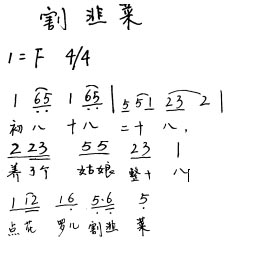 割韭菜
1=F 4/4
1 65 1 65 | 551 23 2 |
初八 十八 二十八,
2 23 55 23 1
养了个 姑娘 整十八
1 12 16 5·6 5
点花 罗儿 割韭 菜